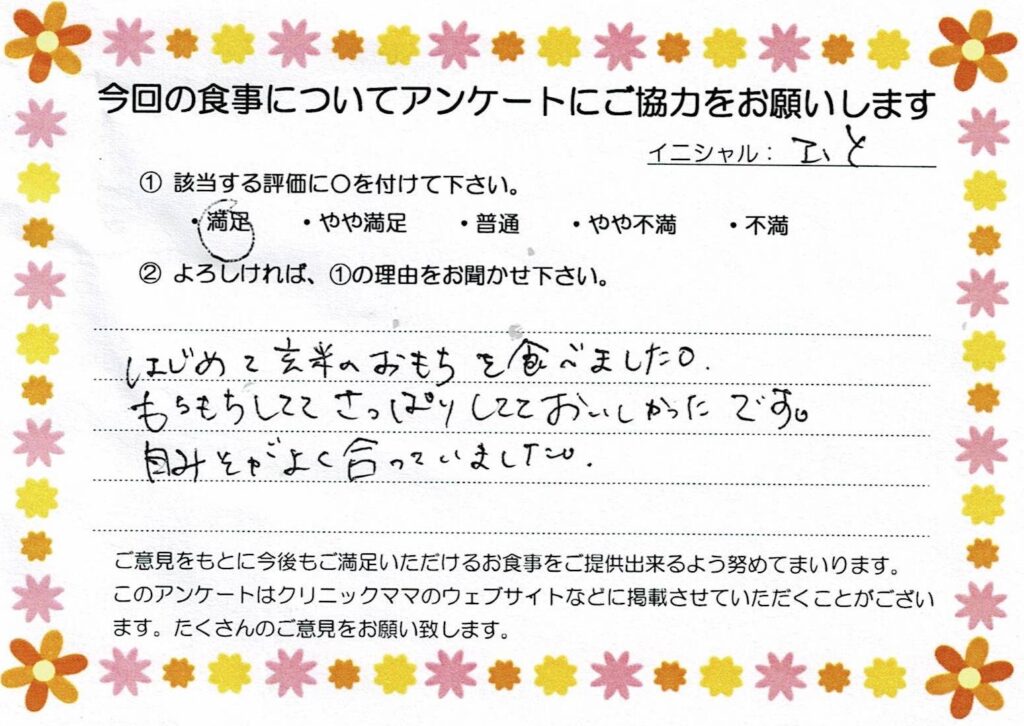 今回の食事についてアンケートにご協力をお願いします
イニシャル：
① 該当する評価に○を付けて下さい。
・満足 ・やや満足 ・普通 ・やや不満 ・不満
② よろしければ、①の理由をお聞かせ下さい。
はじめて玄米のおもちを食べました。
もちもちしてて さっぱりしてて おいしかったです。
白みそがよく合っていました。
ご意見をもとに今後もご満足いただけるお食事をご提供出来るよう努めてまいります。
このアンケートはクリニックママのウェブサイトなどに掲載させていただくことがござい
ます。たくさんのご意見をお願い致します。